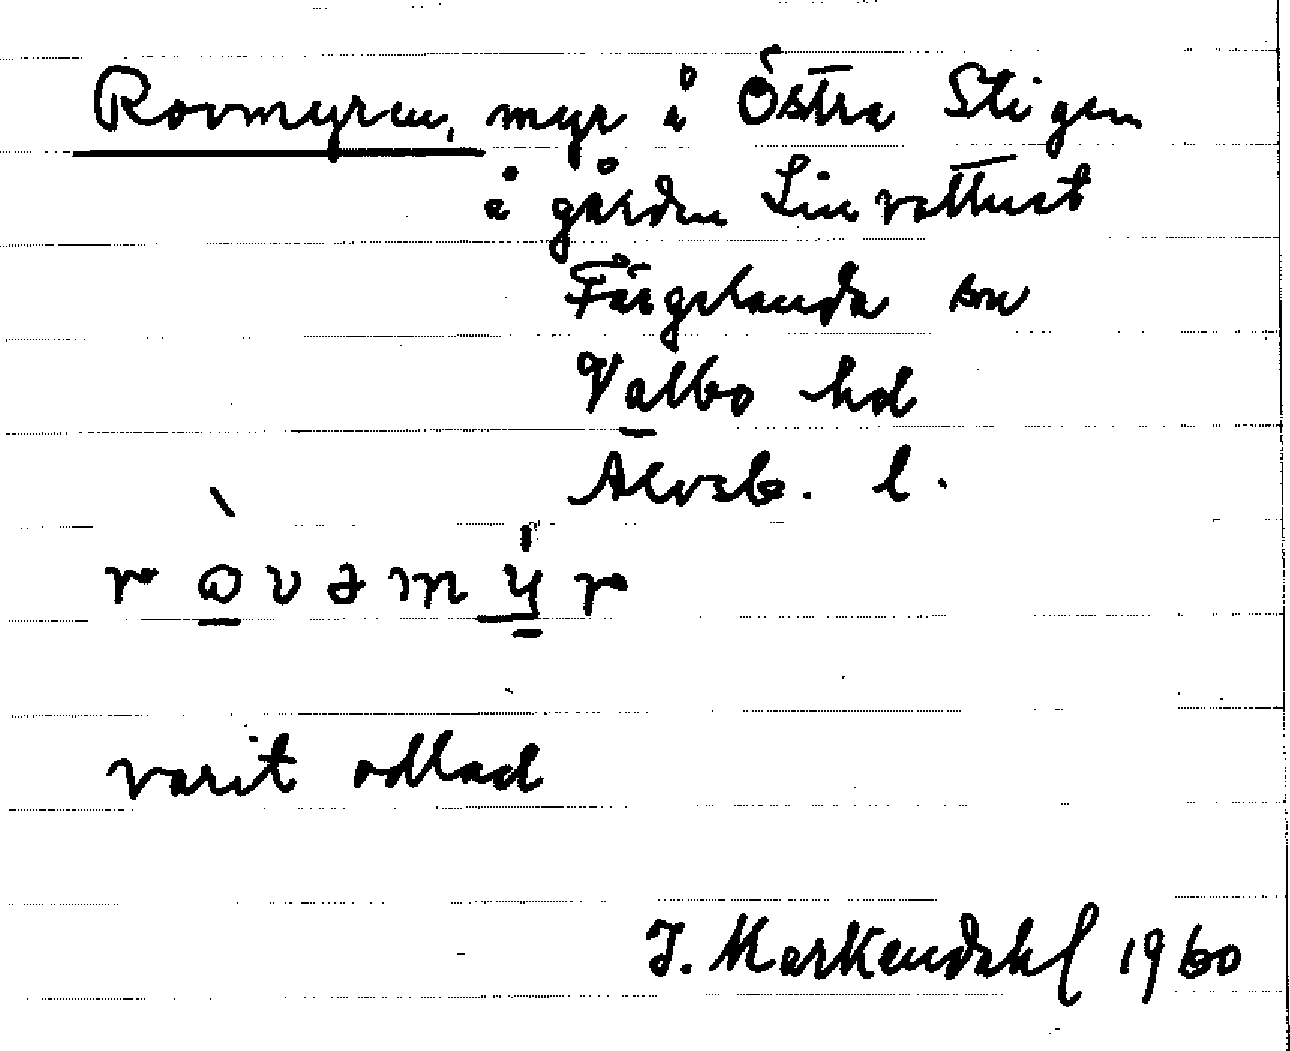 Rovmyren, myr å Östra Stigen
å gården Linvattnet
Färgelanda sn
Valbo hd
Älvsb. l.
ròvəmýr
varit odlad
J. Markendahl 1960